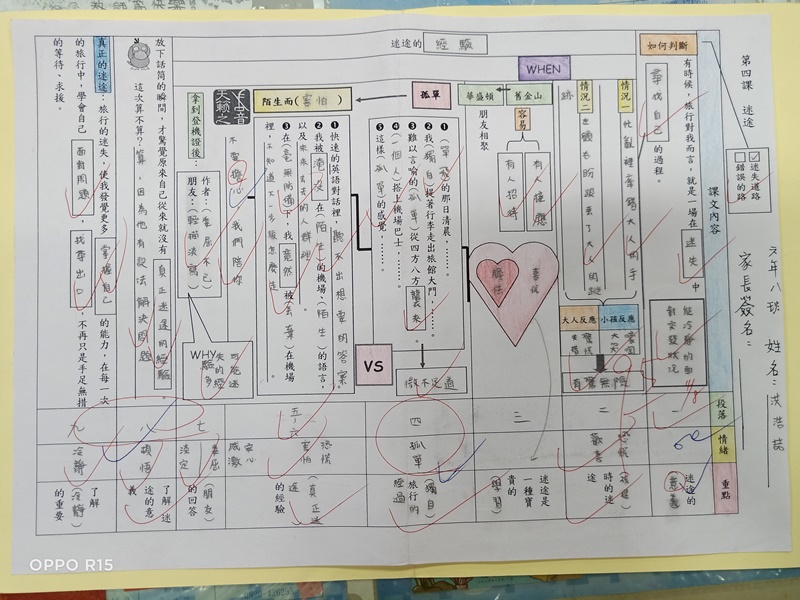 第四課 迷途
課文內容
迷失道路
錯誤的路
六年八班 姓名：洪浩喆
家長簽名：
如何判斷
有時候，旅行對我而言，就是一場在迷失中
尋找自己的過程。
迷途的 經驗
WHEN
情況一
情況二
大人反應
小孩反應
有驚無險
舊金山
華盛頓
容易
有人接應
有人招待
朋友相聚
孤單
❶
❷我(獨自)提著行李走出旅館大門，……
❸難以言喻的(孤單)從四方八方襲來。
❹(一個人)搭上機場巴士……
❺這樣(孤單)的感覺，……
微不足道
VS
陌生而(害怕)
❶快速的英語對話裡，聽不出想要的答案。
❷我被淹沒在(陌生)的機場、(陌生)的語言，
以及來來去去的人群裡。
❸在(毫無防備)下，我竟然被(丟棄)在機場
裡，不知道下一步該怎麼走。
天賴之音
不要擔心，我們陪你
拿到登機證後：
作者：(委屈不已)
朋友：(輕描淡寫)
WHY
放下話筒的瞬間，才驚覺原來自己從來就沒有真正迷途的經驗
這次算不算？算，因為他有設法解決問題
真正的迷途：旅行的迷失，使我發覺更多掌握自己的能力，在每一次
的旅行中，學會自己面對問題、找尋出口，不再只是手足無措
的等待、求援。
段落
情緒
重點
一
迷途的(意義)
二
三
迷途是一種寶貴的(學習)
四
孤單
(獨自)旅行的經過
五~六
害怕 恐慌
(真正迷途)的經驗
七
(朋友)的回答
八
頓悟
了解迷途的意義
九
冷靜
了解(冷靜)的重要
OPPO R15